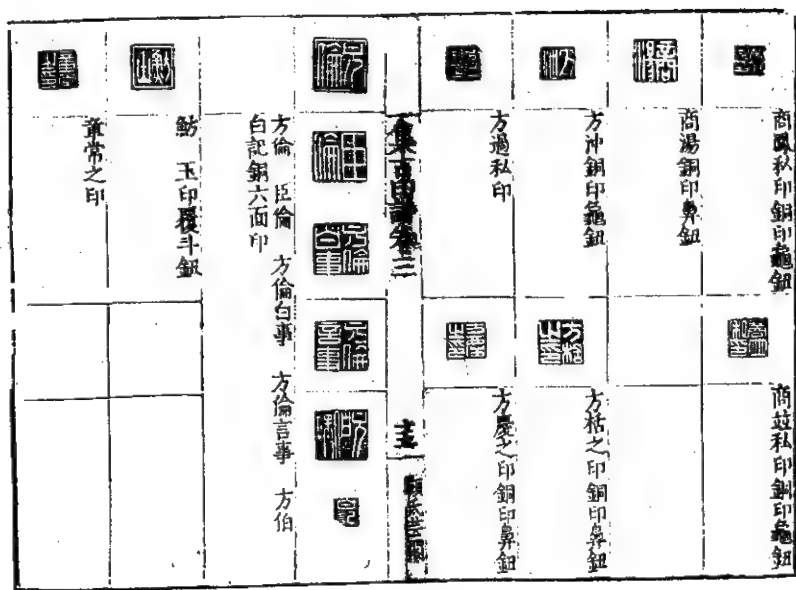 商鳳私印銅印龜鈕
商並私印銅印龜鈕
商湯銅印鼻鈕
方沖銅印龜鈕
方栝之印銅印鼻鈕
方過私印
方慶之印銅印鼻鈕
集古印譜卷三
顧氏芸閣
方倫 臣倫 方倫白事 方倫言事 方伯
白記銅六面印
魴 玉印覆斗鈕
童常之印